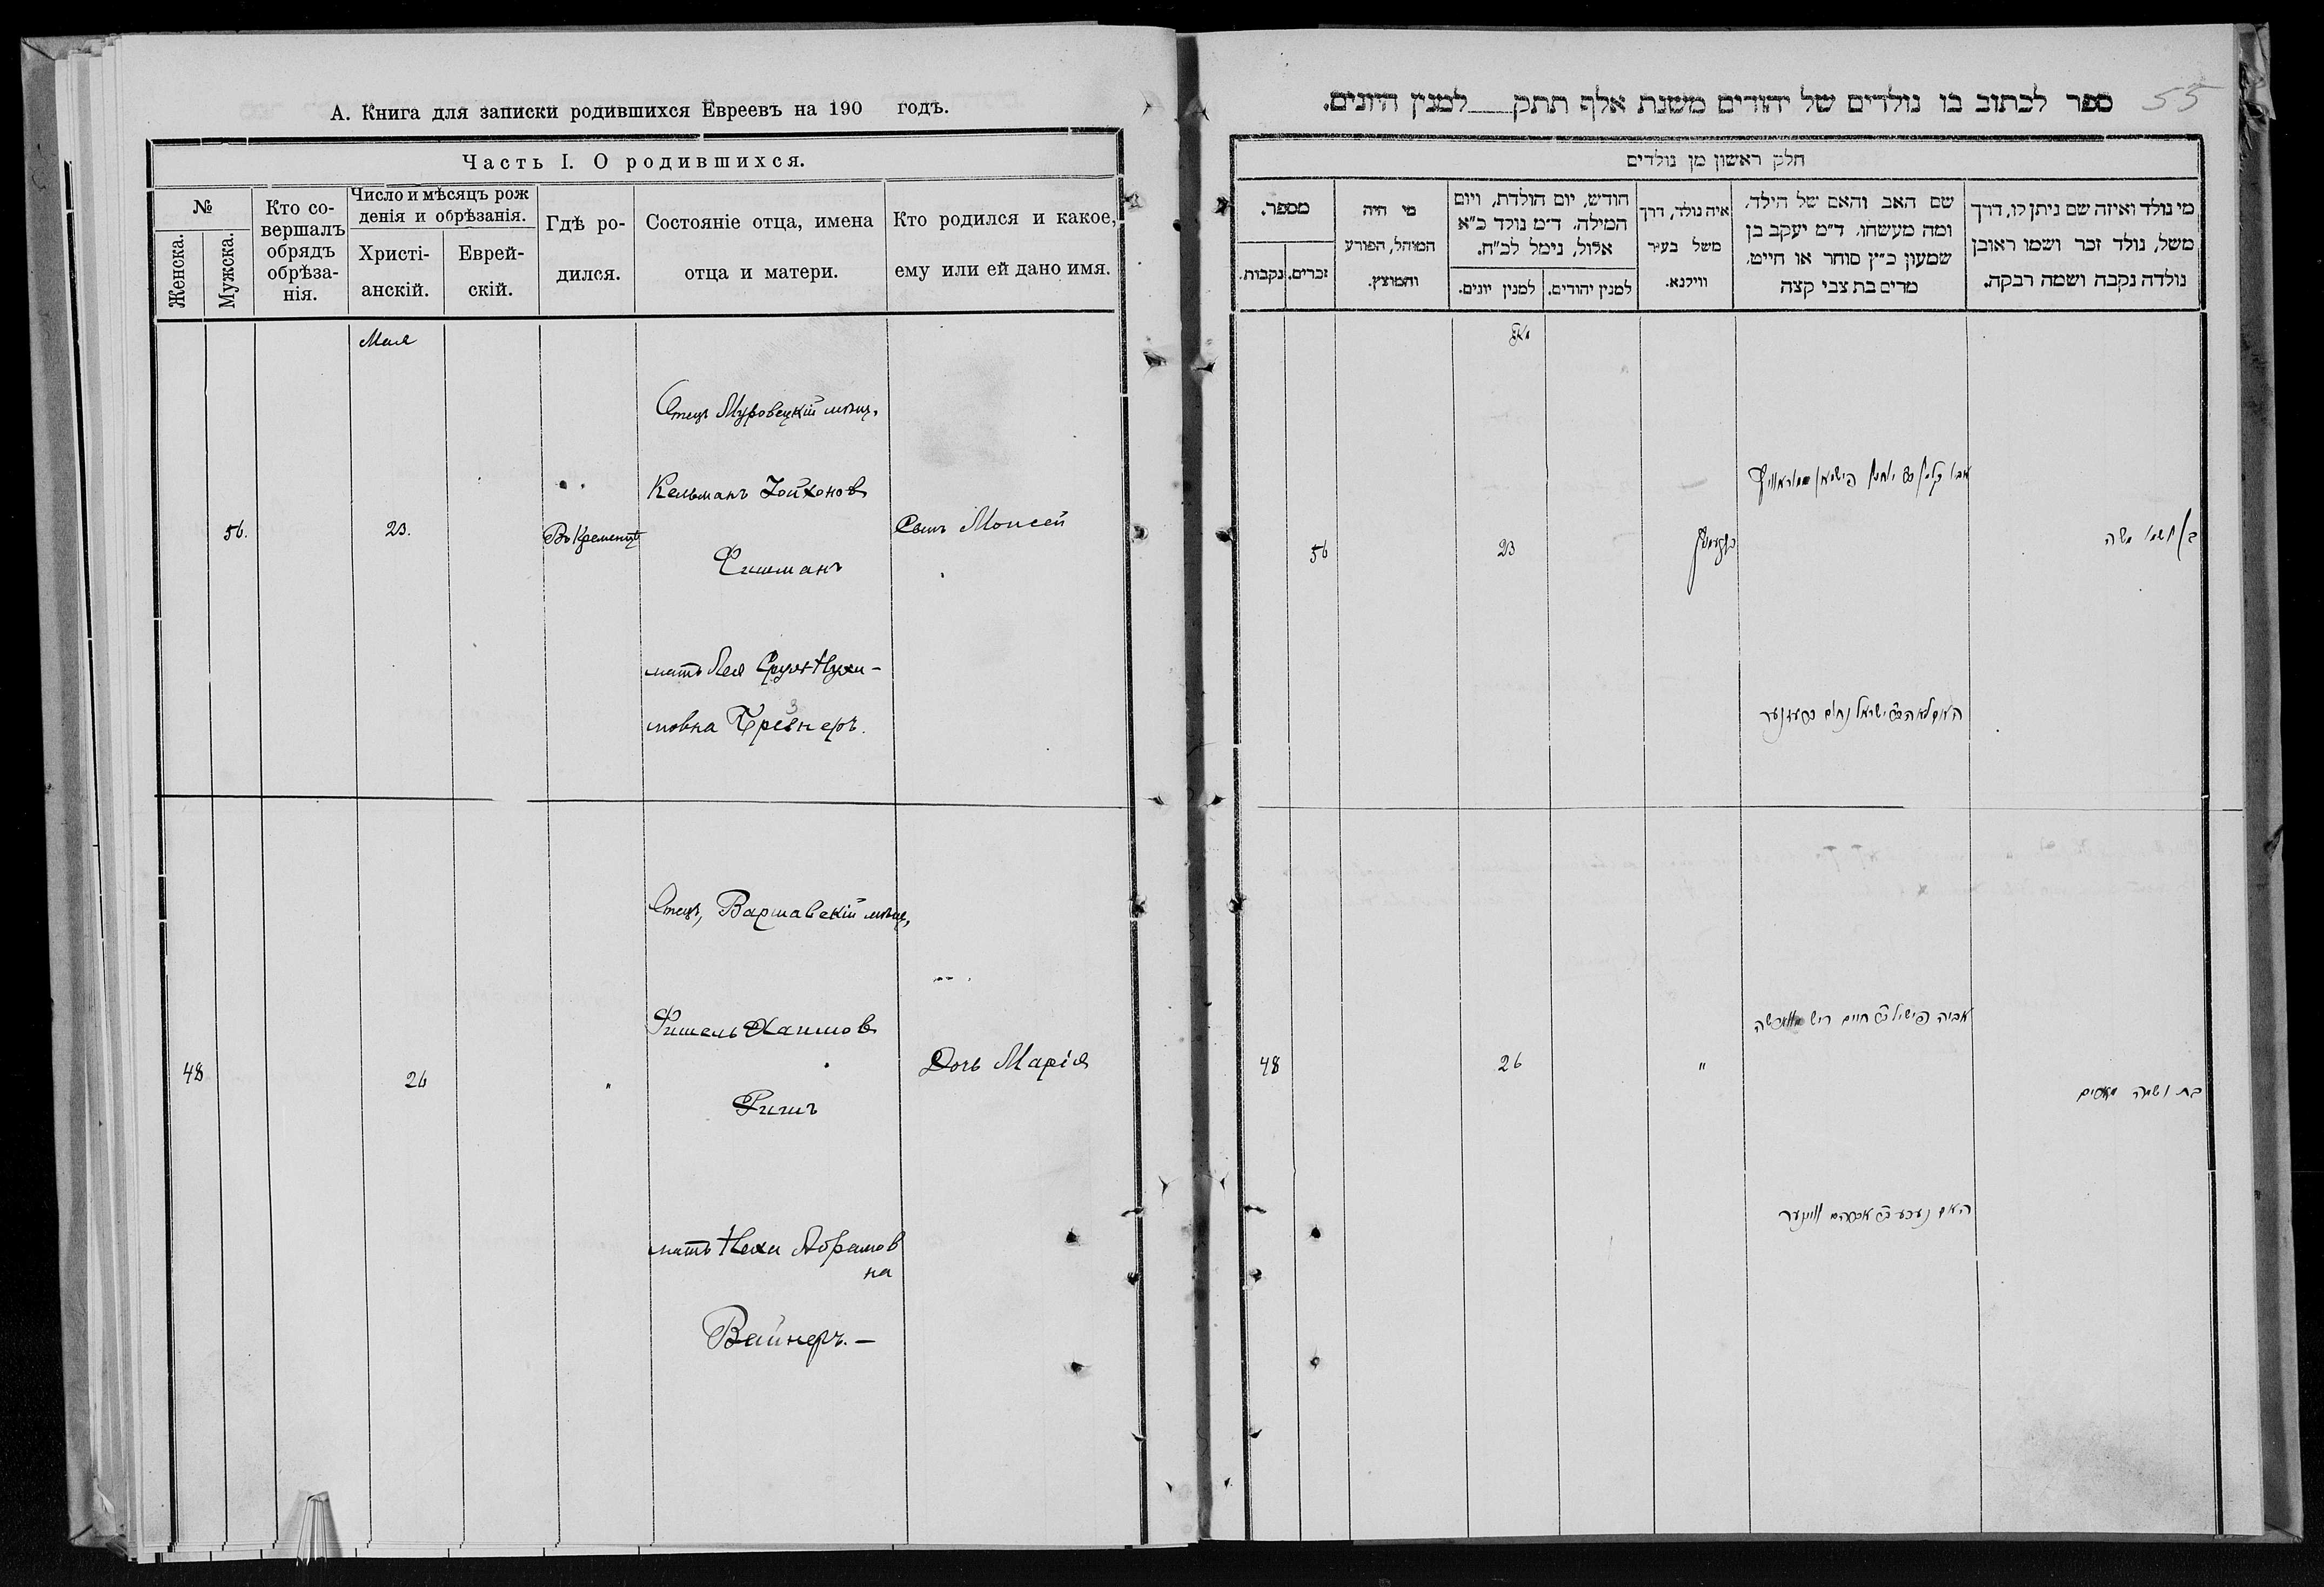 А. Книга для записки родившихся Евреевъ на 190 годъ.
Часть I. О родившихся.
№
Женска.
Мужска.
Кто со-
вершалъ
обрядъ
обрѣза-
нія.
Число и мѣсяцъ рож
денія и обрѣзанія.
Христі-
анскій.
Еврей-
скій.
Гдѣ ро-
дился.
Состояніе отца, имена
отца и матери.
Кто родился и какое,
ему или ей дано имя.
Мая
56.
23.
Въ Кременцѣ
Отецъ Муровецкій мѣщ.
Кельманъ
Фишманъ
мать Лея
мовна
Сынъ Моисей
48
26
"
Отецъ, Варшавскій мѣщ.
Фишель Хаимовъ
Ришъ
мать Нехи Абрамов
на
Вайнеръ. —
Дочь Марія
55
ספר לכתוב בו נולדים של יהודים משנת אלף תתק למנין היונים.
חלק ראשון מן נולדים
מספר.
זכרים.
נקבות.
מי היה
המוהל, הפורע
והמוצץ.
חודש, יום הולדת, ויום
המילה. ד״מ נולד כ״א
אלול, נימל לכ״ח.
למנין יונים.
למנין יהודים.
איה נולד, דרך
משל בעיר
ווילנא.
שם האב והאם של הילד.
ומה מעשהו. ד״מ יעקב בן
שמעון כ״ץ סוחר או חייט.
מרים בת צבי קצה
מי נולד ואיזה שם ניתן לו, דרך
משל, נולד זכר ושמו ראובן
נולדה נקבה ושמה רבקה.
מאי
56
23
בן ושמו משה
48
26
"
אביה פישיל חיים ריש
האם אברהם ווינער
בת ושמה מרים